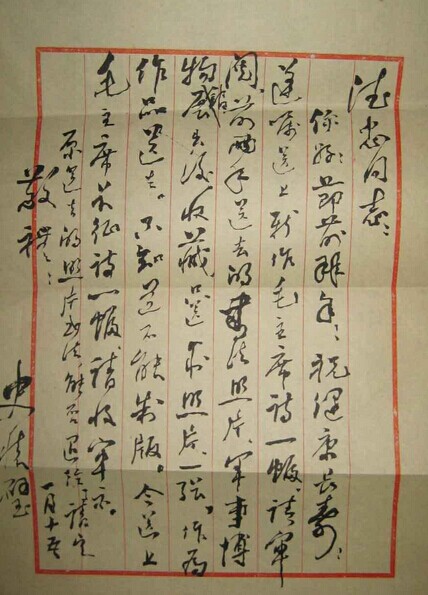 德忠同志：
你好！节前拜年：祝健康长寿！
遵嘱送上新作毛主席诗一幅，请审
阅。前两年送去的书法照片、军事博
物馆展出后收藏只送来照片一张，作为
作品送去。不知道不能制版。今送上
毛主席长征诗一幅，请收审示。
原送去的照片书法能否退给，请定
敬礼：
史
一月十五